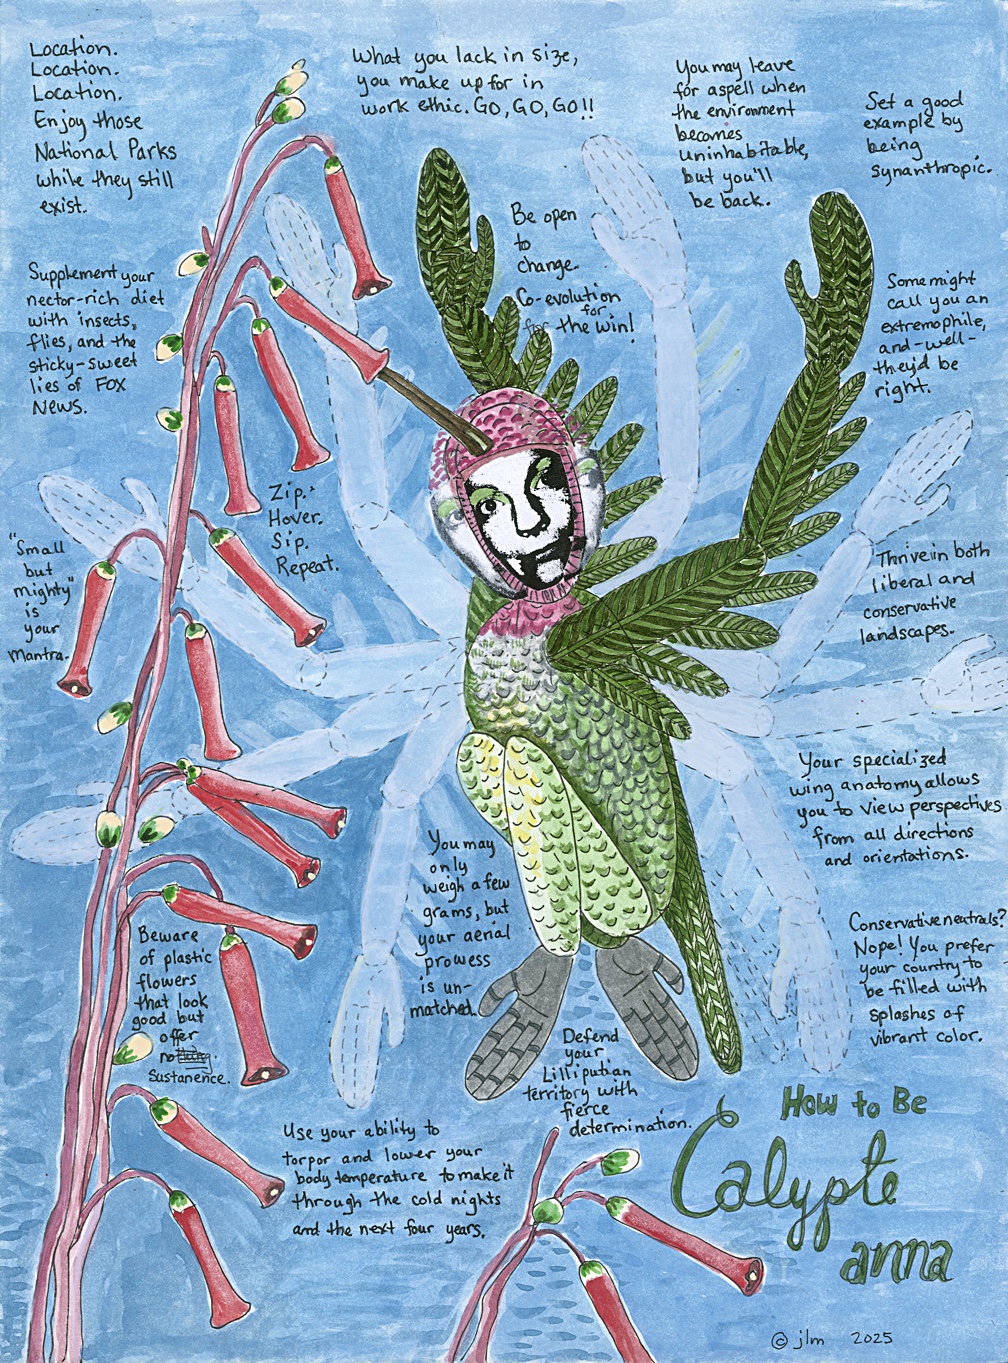 Location.
Location.
Location.
Enjoy those
National Parks
while they still
exist.
What you lack in size,
you make up for in
work ethic. GO, GO, GO!!
You may leave
for a spell when
the environment
becomes
uninhabitable,
but you'll
be back.
Set a good
example by
being
synanthropic.
Be open
to
change.
Co-evolution
for
the win!
Supplement your
nector-rich diet
with insects,
flies, and the
sticky-sweet
lies of FOX
News.
Some might
call you an
extremophile,
and-well-
they'd be
right.
Zip.
Hover.
Sip.
Repeat.
"Small
but
mighty"
is
your
mantra.
Thrive in both
liberal and
conservative
landscapes.
Your specialized
wing anatomy allows
you to view perspectives
from all directions
and orientations.
You may
only
weigh a few
grams, but
your aerial
prowess
is un-
matched.
Conservative neutrals?
Nope! You prefer
your country to
be filled with
splashes of
vibrant color.
Beware
of plastic
flowers
that look
good but
offer
no
sustanence.
Defend
your
Lilliputian
territory with
fierce
determination.
Use your ability to
torpor and lower your
body temperature to make it
through the cold nights
and the next four years.
How to Be
Calypte
anna
© jlm 2025